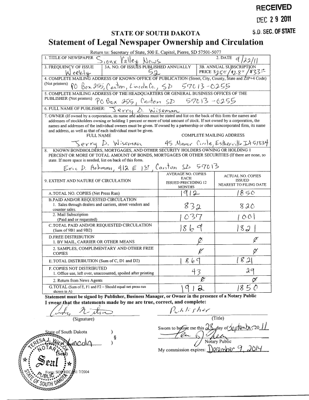 RECEIVED
DEC 29 2011
S.D. SEC. OF STATE
STATE OF SOUTH DAKOTA
Statement of Legal Newspaper Ownership and Circulation
Return to: Secretary of State, 500 E. Capitol, Pierre, SD 57501-5077
1. TITLE OF NEWSPAPER Sioux Valley News
2. DATE 9/22/11
3. FREQUENCY OF ISSUE Weekly
3A. NO. OF ISSUES PUBLISHED ANNUALLY 52
3B. ANNUAL SUBSCRIPTION PRICE
4. COMPLETE MAILING ADDRESS OF KNOWN OFFICE OF PUBLICATION (Street, City, County, State and Zip+4 Code) (Not printers)
PO Box 255, Canton, Lincoln, SD 57013-0255
5. COMPLETE MAILING ADDRESS OF THE HEADQUARTERS OR GENERAL BUSINESS OFFICES OF THE PUBLISHER (Not printers)
PO Box 255, Canton SD 57013-0255
6. FULL NAME OF PUBLISHER: Jerry D. Wiseman
7. OWNER (If owned by a corporation, its name and address must be stated and list on the back of this form the names and addresses of stockholders owning or holding 1 percent or more of total amount of stock. If not owned by a corporation, the names and addresses of the individual owners must be given. If owned by a partnership or other unincorporated firm, its name and address, as well as that of each individual must be given.
FULL NAME
COMPLETE MAILING ADDRESS
Jerry D. Wiseman
8. KNOWN BONDHOLDERS, MORTGAGEES, AND OTHER SECURITY HOLDERS OWNING OR HOLDING 1 PERCENT OR MORE OF TOTAL AMOUNT OF BONDS, MORTGAGES OR OTHER SECURITIES (If there are none, so state. If more space is needed, list on back of this form.
Canton SD 57013
9. EXTENT AND NATURE OF CIRCULATION
AVERAGE NO. COPIES EACH ISSUED PRECEDING 12 MONTHS
ACTUAL NO. COPIES ISSUED NEAREST TO FILING DATE
A. TOTAL NO. COPIES (Net Press Run) 1912 1850
B. PAID AND/OR REQUESTED CIRCULATION
1. Sales through dealers and carriers, street vendors and counter sales 832 820
2. Mail Subscription (Paid and or requested) 1037 1001
C. TOTAL PAID AND/OR REQUESTED CIRCULATION (Sum of 9B1 and 9B2) 1869 1821
D. FREE DISTRIBUTION
1. BY MAIL, CARRIER OR OTHER MEANS Ø Ø
2. SAMPLES, COMPLIMENTARY AND OTHER FREE COPIES Ø Ø
E. TOTAL DISTRIBUTION (Sum of C, D1 and D2) 1869 1821
F. COPIES NOT DISTRIBUTED
1. Office use, left over, unaccounted, spoiled after printing 43 29
2. Return from News Agents Ø Ø
G. TOTAL (Sum of E, F1 and F2 – Should equal net press run shown in A) 1912 1850
Statement must be signed by Publisher, Business Manager, or Owner in the presence of a Notary Public
I swear that the statements made by me are true, correct, and complete:
Publisher
(Signature)
(Title)
State of South Dakota
Lincoln
Sworn to before me this 28 day of September 11
Notary Public
My commission expires: December 9, 2014
NOTARY
Seal
PUBLIC
STATE OF SOUTH DAKOTA